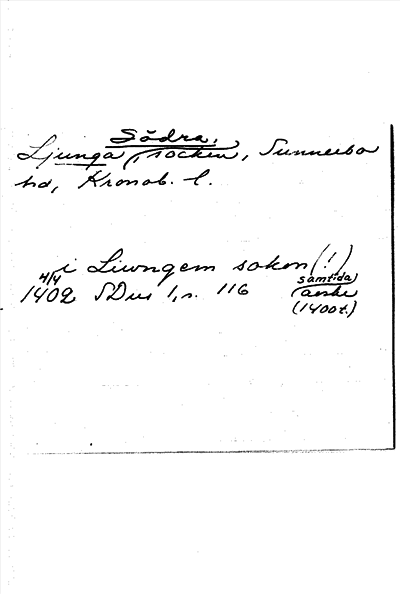 Södra,
Ljunga, socken, Sunnerbo
hd, Kronob. l.
i Liwngem sokon (!)
4/4 samtida
1402 SDns 1, s. 116 avskr
(1400t.)